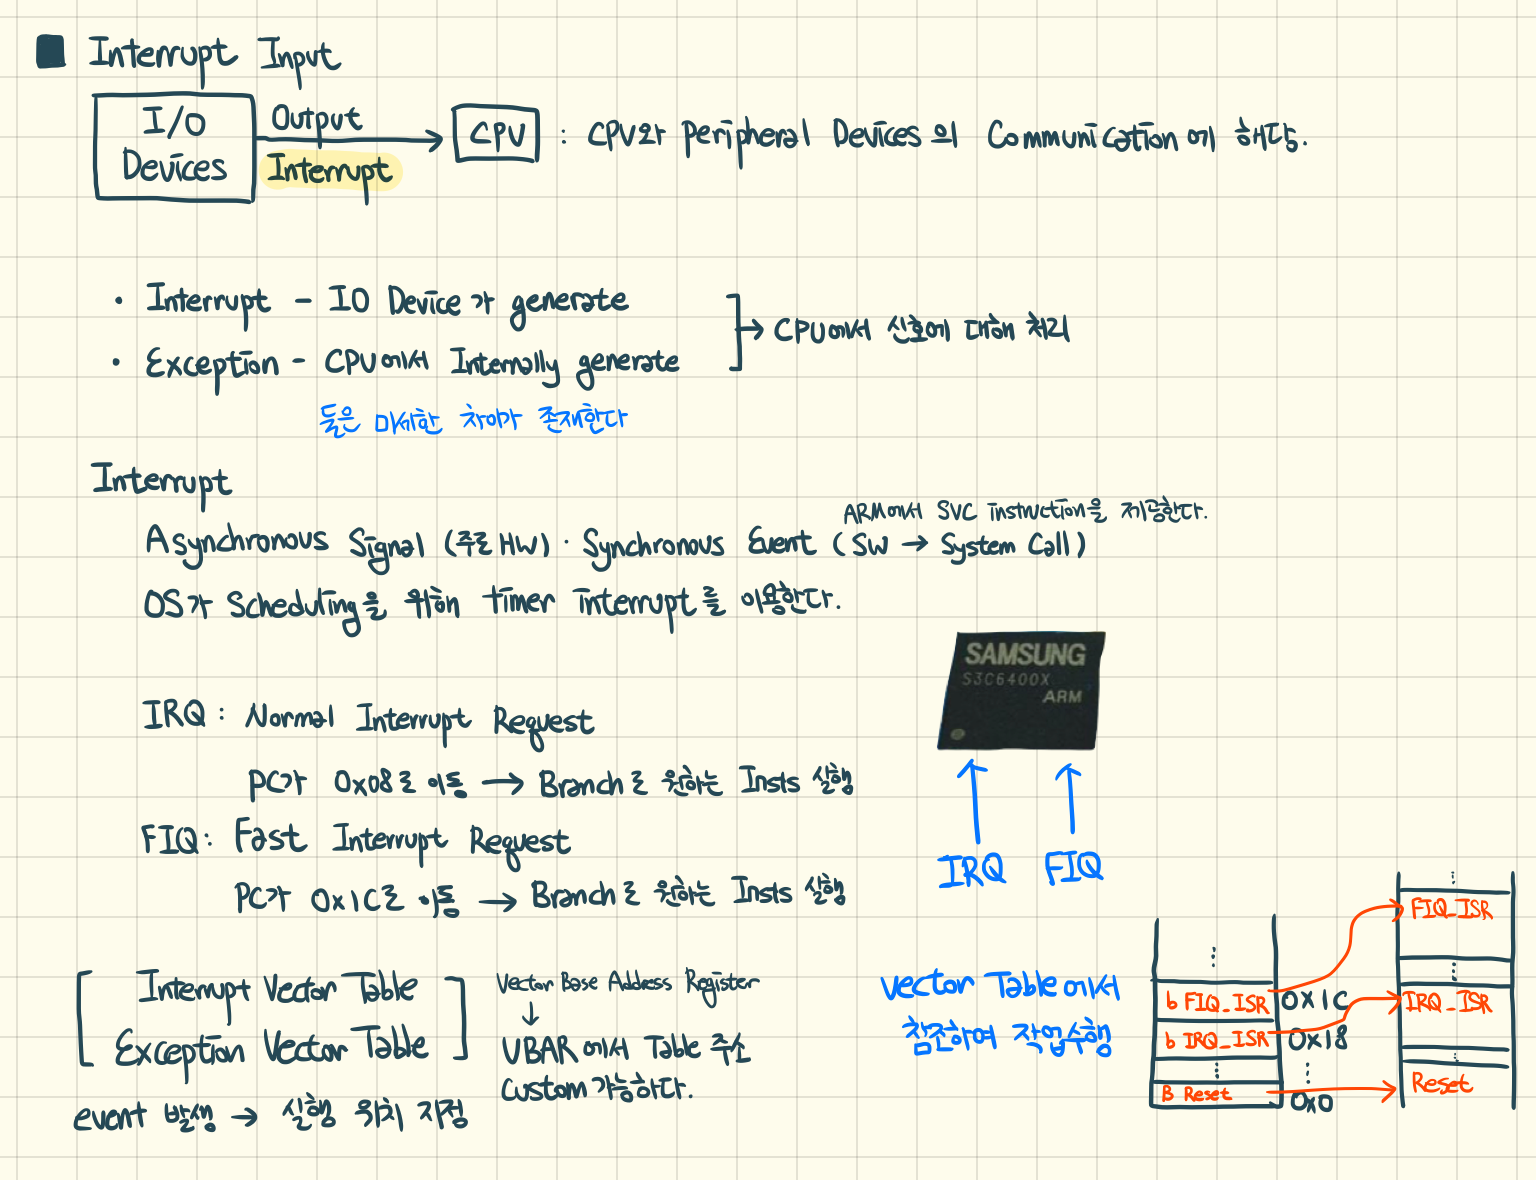 Interrupt Input
I/O Devices
Output
Interrupt
CPU
: CPU와 Peripheral Devices 의 Communication 에 해당.
· Interrupt - IO Device가 generate
· Exception - CPU에서 Internally generate
→ CPU에서 신호에 대해 처리
둘은 미세한 차이가 존재한다
Interrupt
ARM에서 SVC instruction을 제공한다.
Asynchronous Signal (주로 HW) · Synchronous Event (SW → System Call)
OS가 Scheduling을 위해 timer interrupt를 이용한다.
SAMSUNG
S3C6400X
ARM
IRQ : Normal Interrupt Request
PC가 0x08로 이동 → Branch로 원하는 Insts 실행
FIQ : Fast Interrupt Request
PC가 0x1C로 이동 → Branch로 원하는 Insts 실행
IRQ FIQ
Interrupt Vector Table
Exception Vector Table
event 발생 → 실행 위치 지정
Vector Base Address Register
↓
VBAR에서 Table 주소
Custom 가능하다.
Vector Table에서
참조하여 작업수행
b FIQ_ISR 0x1C
b IRQ_ISR 0x18
B Reset 0x0
FIQ_ISR
IRQ_ISR
Reset